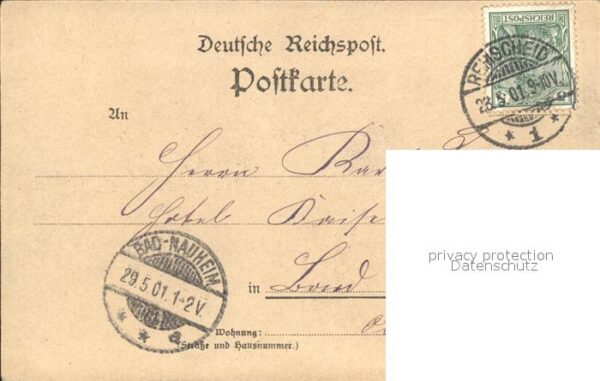 Deutsche Reichspost.
Postkarte.
REICHSPOST
REMSCHEID
28.5.01.9-10V.
* 1 *
An
Herrn
Hotel Kaise
BAD-NAUHEIM
29.5.01.1-2V.
* * a
in Bad
Wohnung:
(Straße und Hausnummer.)
privacy protection
Datenschutz